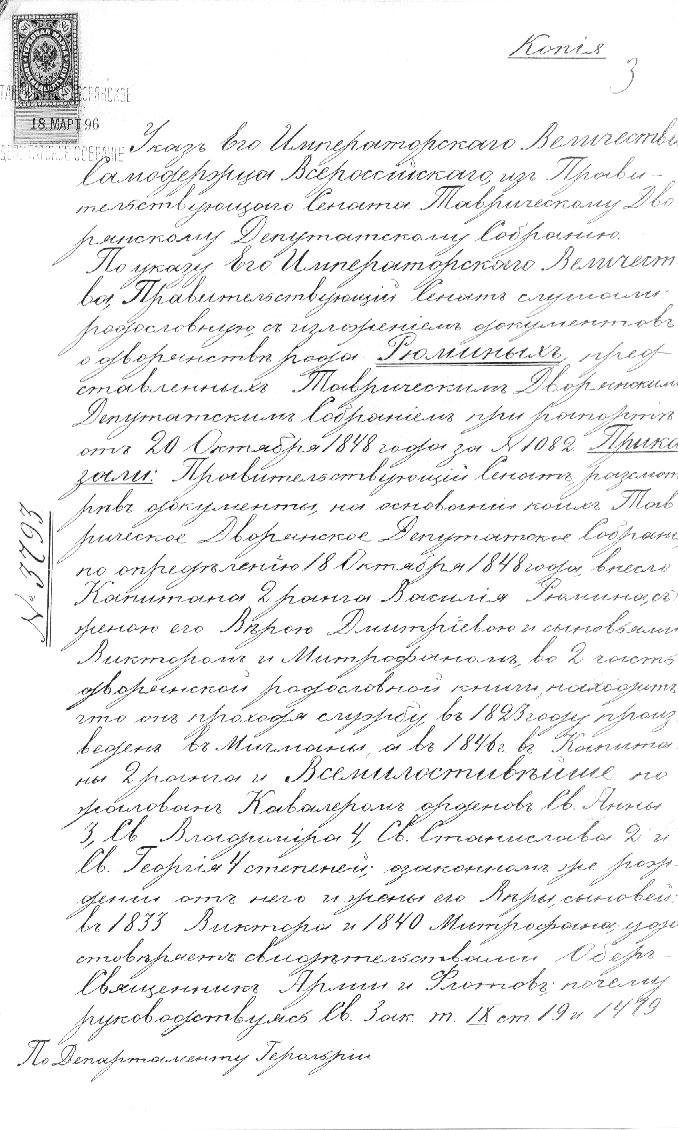 Копія
3
18 МАРТ 96
Указъ Его Императорскаго Величества
Самодержца Всероссийскаго, изъ Прави-
тельствующаго Сената Таврическому Дво
рянскому Депутатскому Собранію.
По указу Его Императорскаго Величест
ва, Правительствующій Сенатъ слушали
родословную, съ изложеніемъ документовъ
о дворянствѣ рода Рюминыхъ, пред
ставленныхъ Таврическимъ Дворянским
Депутатскимъ Собраніемъ при рапортѣ
отъ 20 Октября 1848 года за № 1082. Прика
зали: Правительствующій Сенатъ, разсмот
рѣвъ документы, на основаніи коихъ Тав
рическое Дворянское Депутатское Собрані
по опредѣленію 18 Октября 1848 года, внесло
Капитана 2 ранга Василія Рюмина, съ
женою его Вѣрою Дмитріевою и сыновьями
Викторомъ и Митрофаномъ, во 2 часть
дворянской родословной книги, находитъ,
что онъ проходя службу, въ 1823 году произ
веденъ въ Мичманы, а въ 1846 г. въ Капита-
ны 2 ранга и Всемилостивѣйше по
жалованъ Кавалеромъ орденовъ Св. Анны
3, Св. Владиміра 4, Св. Станислава 2 и
Св. Георгія 4 степеней; о законномъ же рож-
деніи отъ него и жены его Вѣры, сыновей:
въ 1833 Виктора и 1840 Митрофана, удо
стовѣряетъ свидѣтельствами Оберъ-
Священникъ Арміи и Флотовъ; почему
руководствуясь Св. Зак. т. IX ст. 19 и 1479
По Департаменту Герольдіи
№ 3793